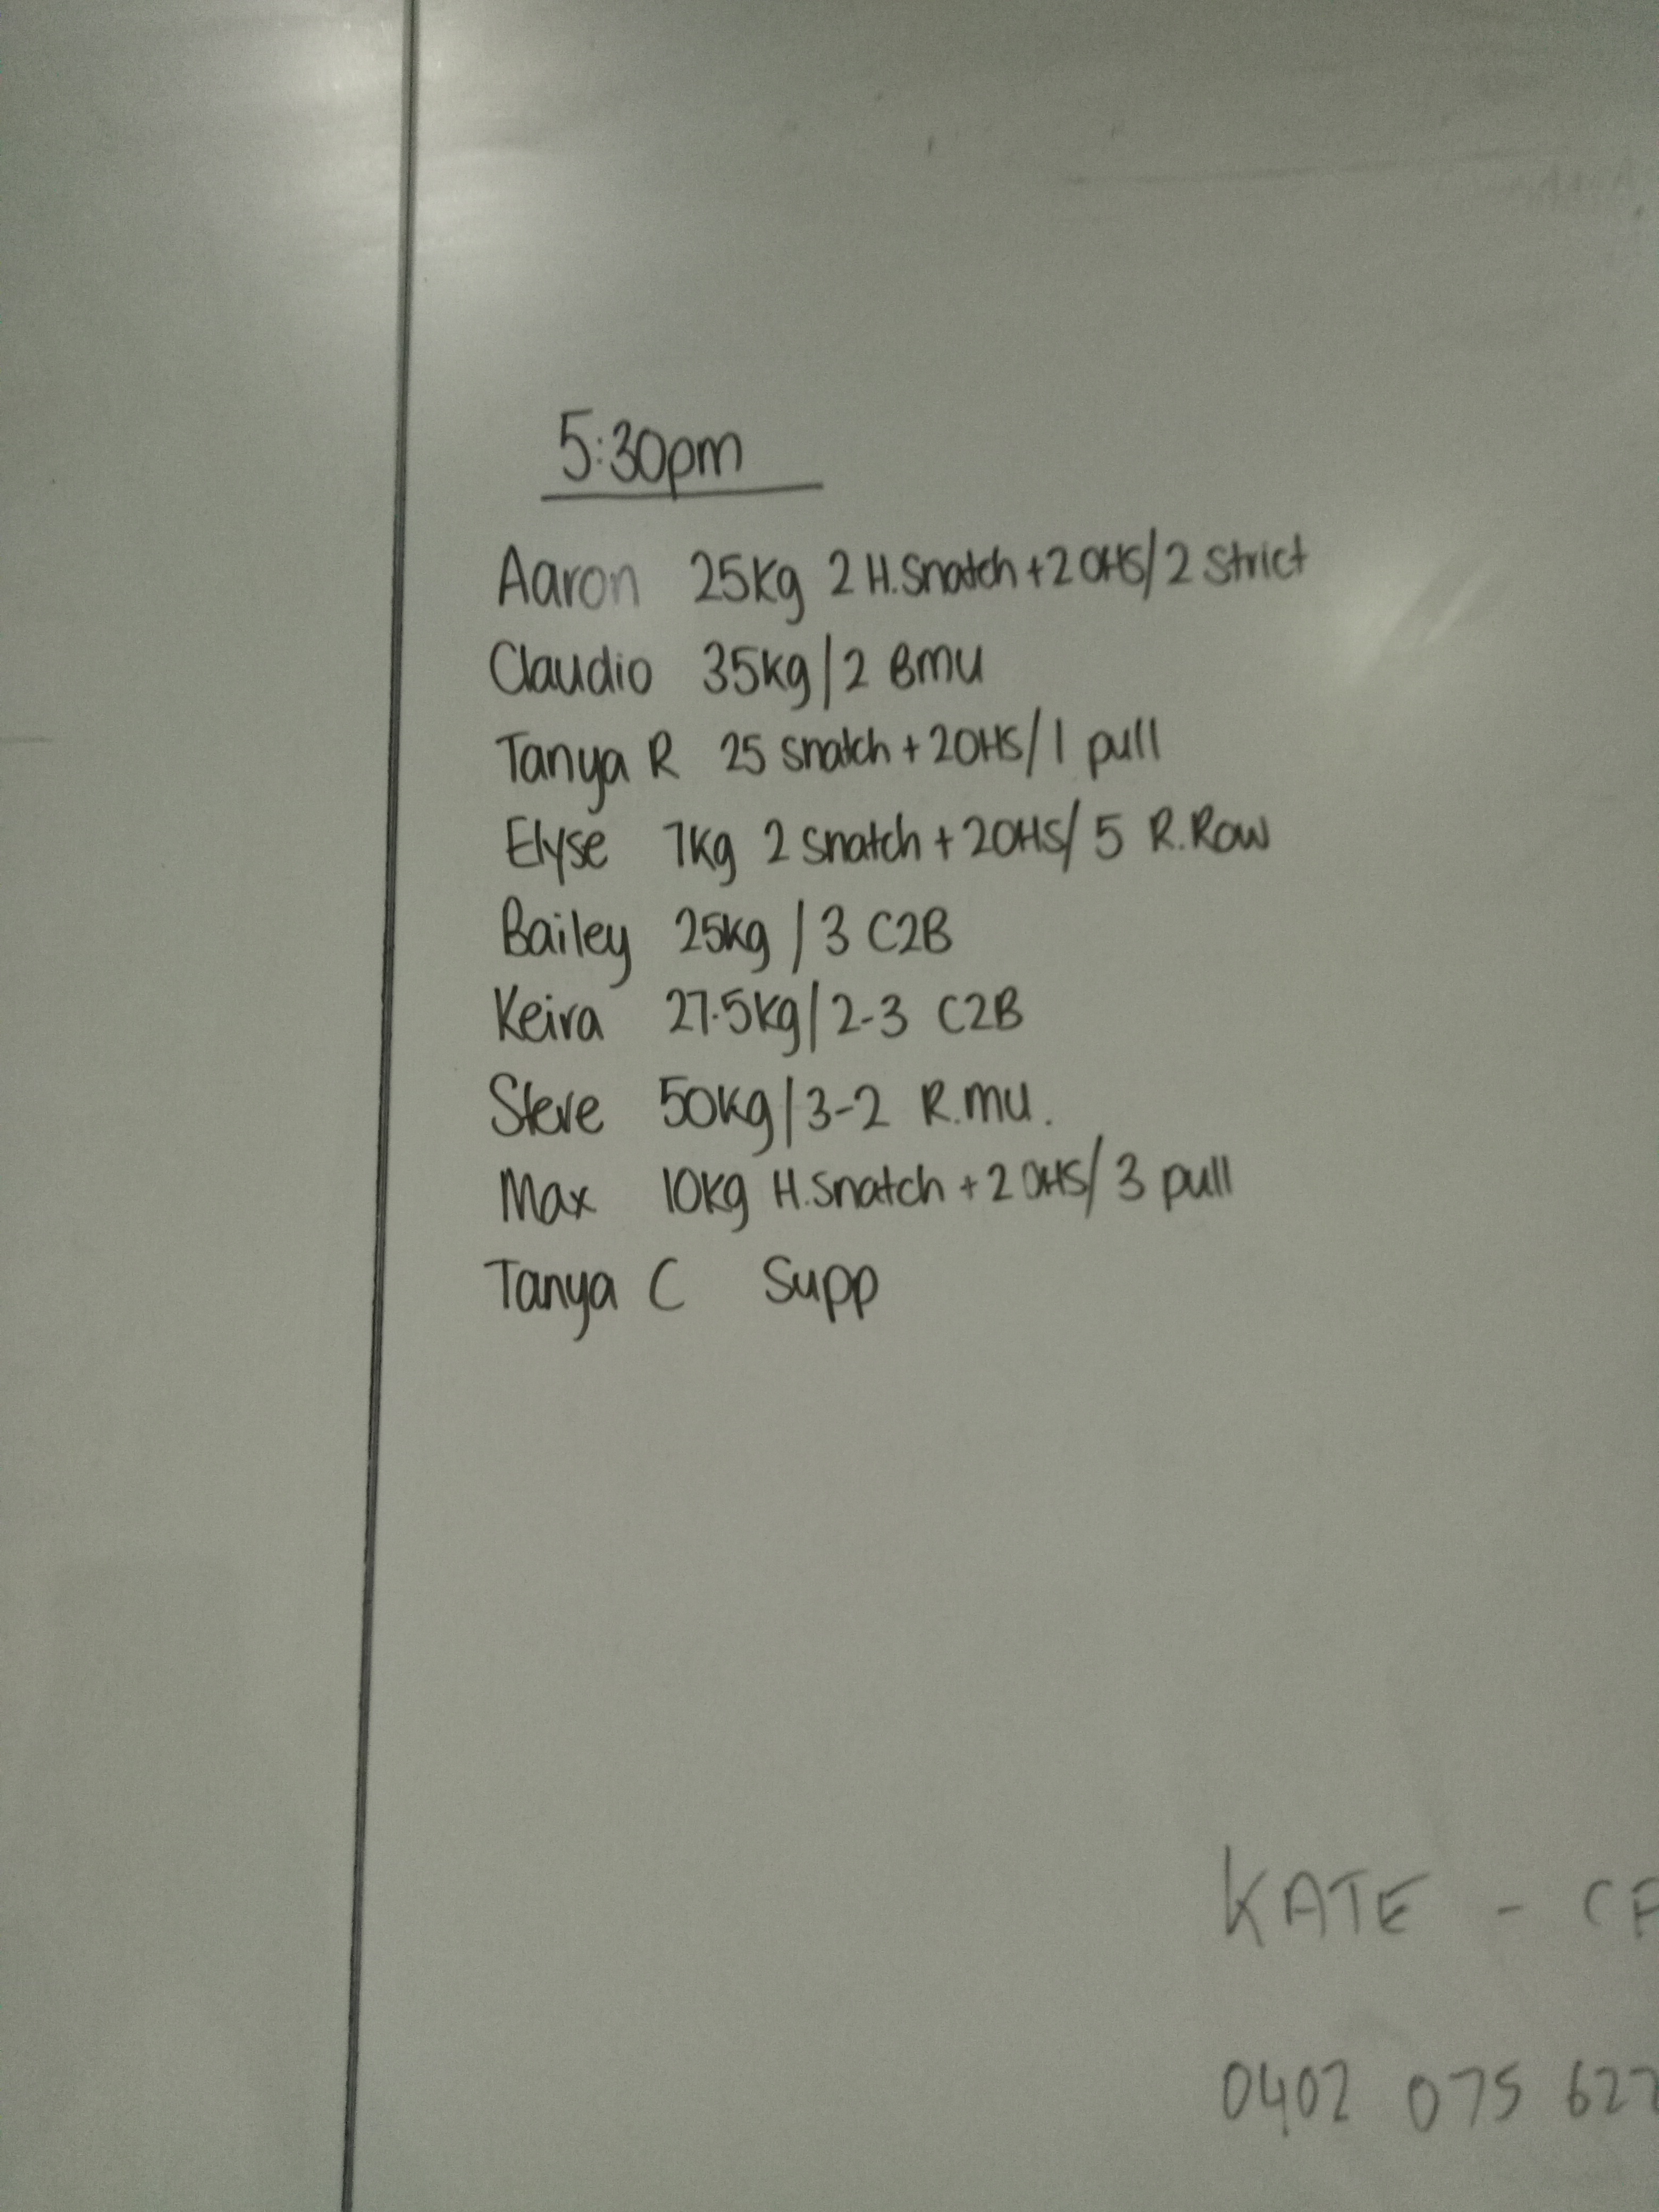 5:30pm
Aaron 25kg 2 H.Snatch + 2 OHS/2 Strict
Claudio 35kg/2 BMU
Tanya R 25 snatch + 2OHS/1 pull
Elyse 7kg 2 snatch + 2OHS/5 R.Row
Bailey 25kg/3 C2B
Keira 27.5kg/2-3 C2B
Steve 50kg/3-2 R.MU.
Max 10kg H.Snatch + 2 OHS/3 pull
Tanya C Supp
KATE - CF
0402 075 627